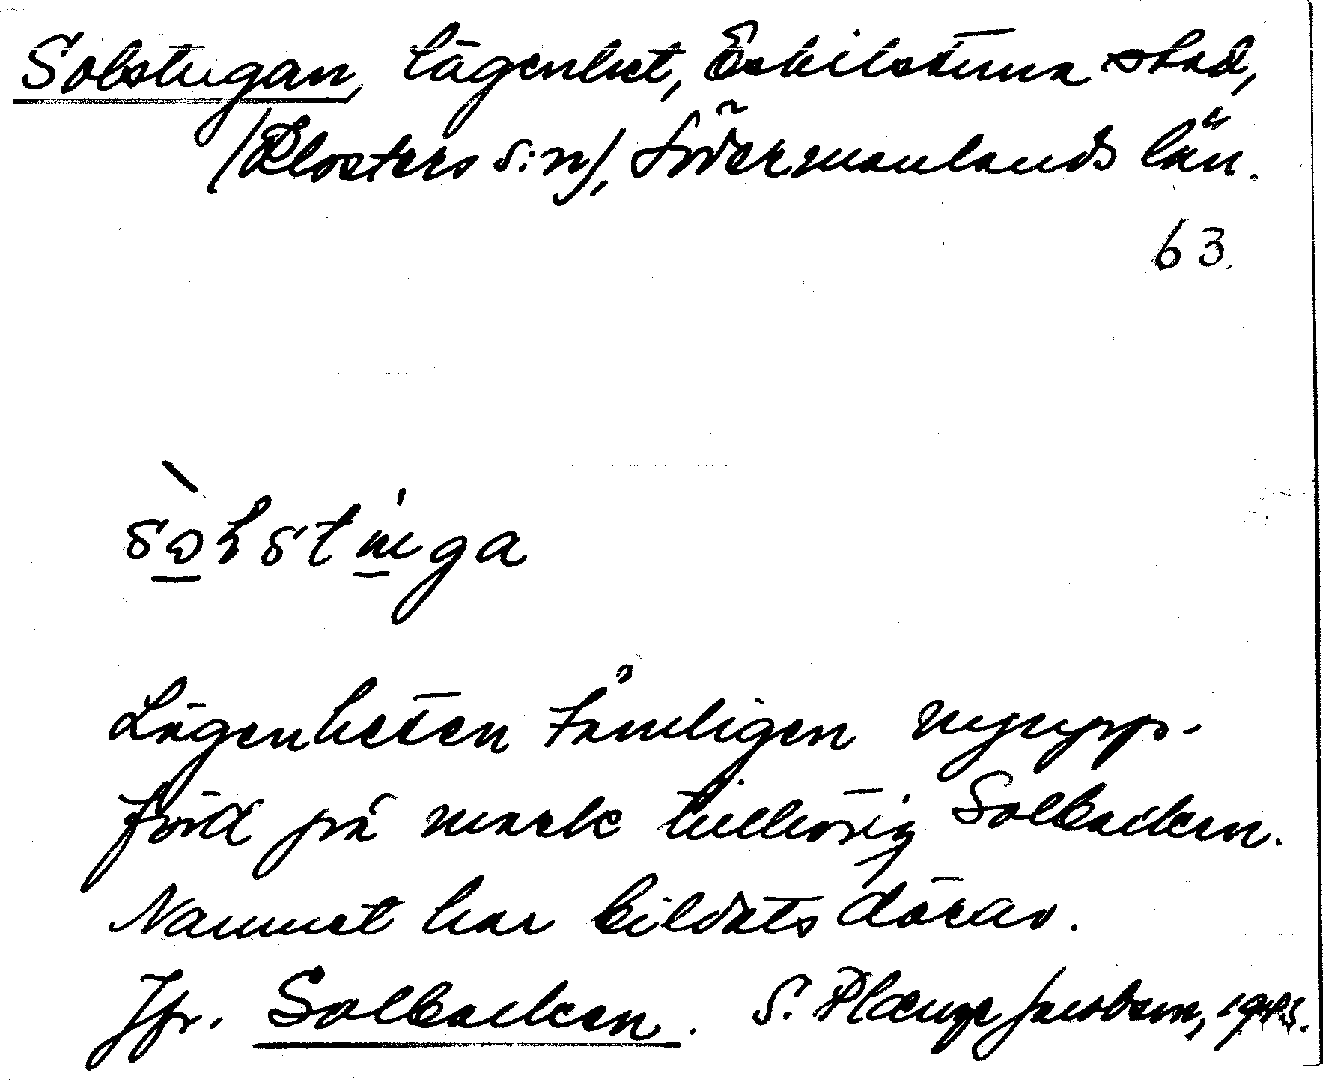 Solstugan, lägenhet, Eskilstuna stad,
/Klosters s:n/, Södermanlands län.
63.
sòlstúga
Lägenheten tämligen nyupp-
förd på mark tillhörig Solbacken.
Namnet har bildats därav.
Jfr. Solbacken. S. Plænge Jacobson, 1943.